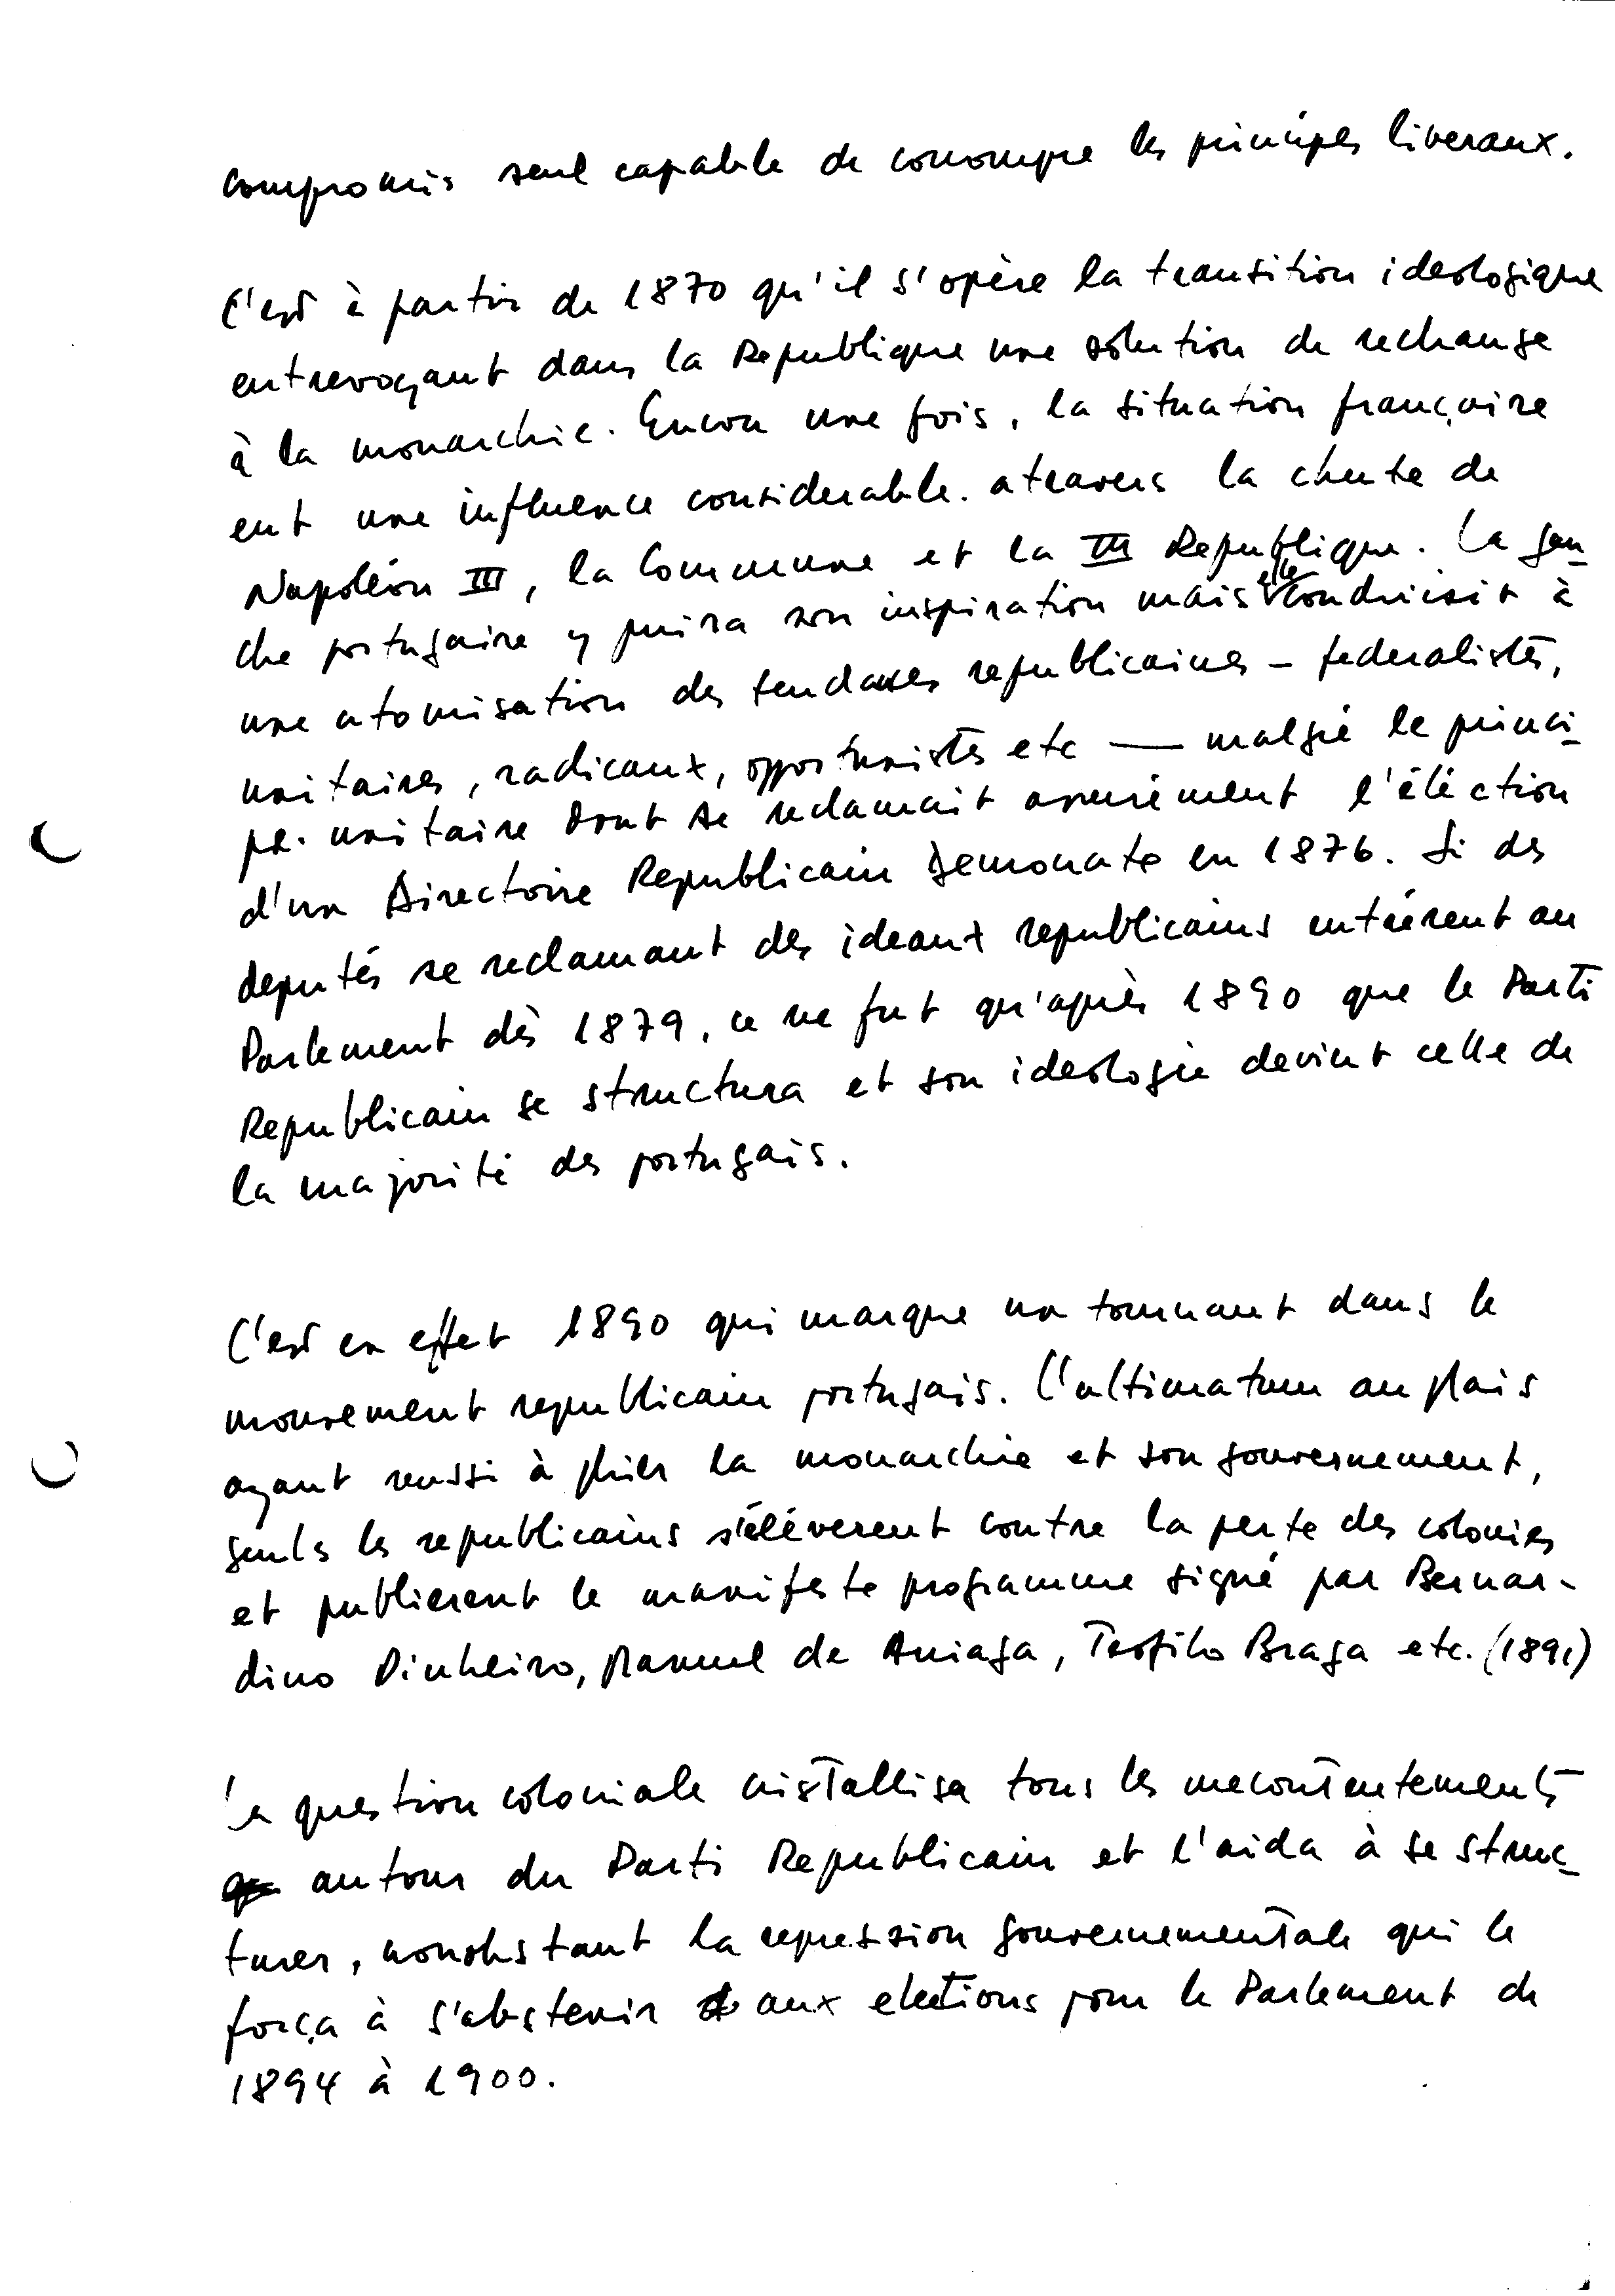 compromis seul capable de corrompre les principes liberaux.
C'est à partir de 1870 qu'il s'opère la transition ideologique
entrevoyant dans la Republique une solution de rechange
à la monarchie. Encore une fois, la situation française
eut une influence considerable. atravers la chute de
Napoléon III, la Commune et la III Republique. La gau-
che portugaise y puisa son inspiration mais elle conduisit à
une atomisation des tendances republicaines - federalistes,
unitaires, radicaux, opportunistes etc — malgré le princi-
pe. unitaire dont se reclamait assurément l'éléction
d'un Directoire Republicain Democrate en 1876. Si des
deputés se reclamant des ideaux republicains entrérent au
Parlement dès 1879, ce ne fut qu'après 1890 que le Parti
Republicain se structura et son ideologie devint celle de
la majorité des portugais.
C'est en effet 1890 qui marque un tournant dans le
mouvement republicain portugais. L'ultimatum anglais
ayant reussi à plier la monarchie et son gouvernement,
seuls les republicains s'élèverent contre la perte des colonies
et publierent le manifeste programme signé par Bernar-
dino Pinheiro, Manuel de Arriaga, Teofilo Braga etc. (1891)
La question coloniale cristallisa tous les mecontentements
autour du Parti Republicain et l'aida à se struc-
turer, nonobstant la repression gouvernementale qui le
força à s'abstenir aux elections pour le Parlement de
1894 à 1900.